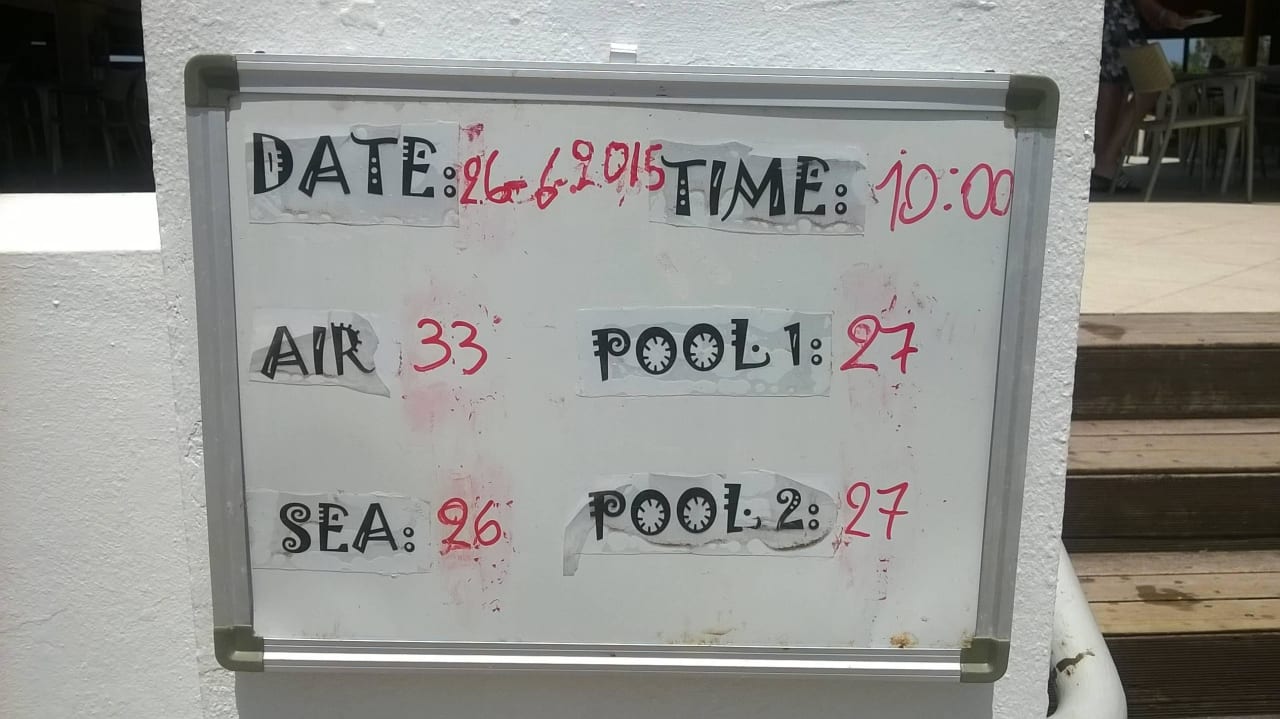 DATE: 26-6-2015 TIME: 10:00
AIR 33 POOL 1: 27
SEA: 26 POOL 2: 27